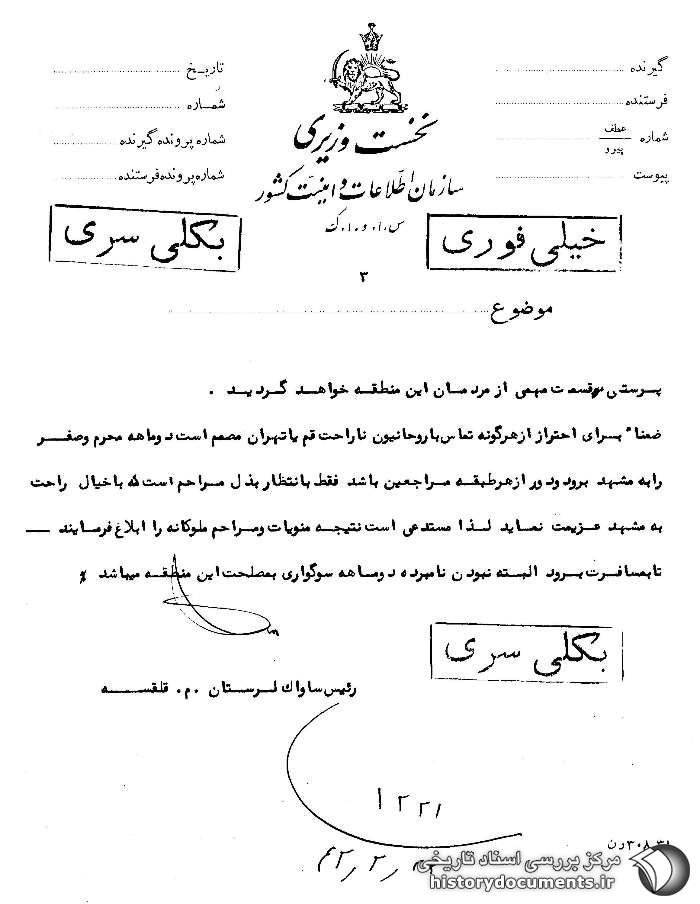 گیرنده
فرستنده
شماره عطف پیرو
پیوست
تاریخ
شماره
شماره پرونده گیرنده
شماره پرونده فرستنده
نخست وزیری
سازمان اطلاعات و امنیت کشور
س.ا.و.ا.ک
خیلی فوری
بکلی سری
۳
موضوع
پرستی قسمت مهمی از مردمان این منطقه خواهد گردید .
ضمنا" برای احتراز از هرگونه تماس با روحانیون ناراحت قم یا تهران مصمم است دو ماهه محرم و صفر
را به مشهد برود و دور از هر طبقه مراجعین باشد فقط بانتظار بذل مراحم است که با خیال راحت
به مشهد عزیمت نماید لذا مستدعی است نتیجه منویات و مراحم ملوکانه را ابلاغ فرمایند —
تا بمسافرت برود البته نبودن نامبرده دو ماهه سوگواری بمصلحت این منطقه میباشد ٪
بکلی سری
رئیس ساواک لرستان .م. قلقسه
۱۲۲۱
۳۰۸ رن
مرکز بررسی اسناد تاریخی
historydocuments.ir